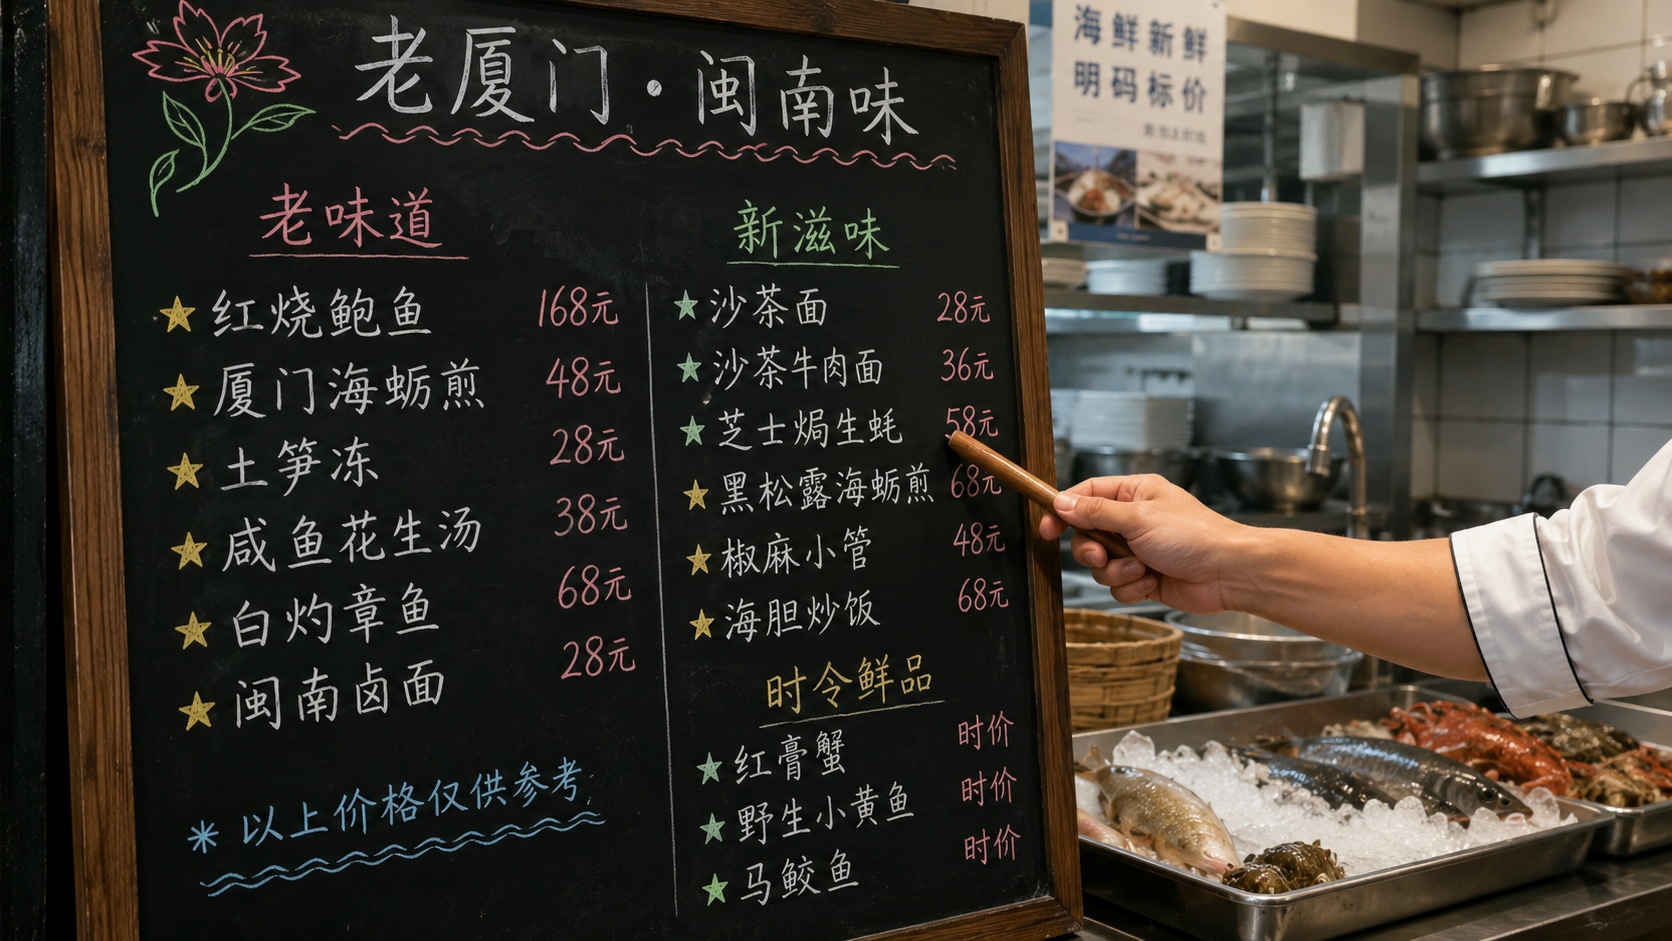 老厦门·闽南味
老味道
红烧鲍鱼 168元
厦门海蛎煎 48元
土笋冻 28元
咸鱼花生汤 38元
白灼章鱼 68元
闽南卤面 28元
* 以上价格仅供参考
新滋味
沙茶面 28元
沙茶牛肉面 36元
芝士焗生蚝 58元
黑松露海蛎煎 68元
椒麻小管 48元
海胆炒饭 68元
时令鲜品
红膏蟹 时价
野生小黄鱼 时价
马鲛鱼 时价
海鲜新鲜
明码标价